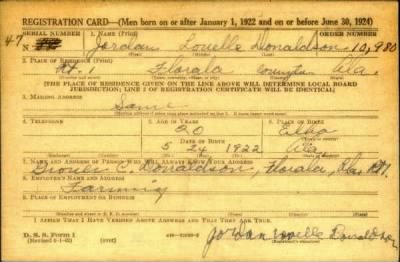 REGISTRATION CARD—(Men born on or after January 1, 1922 and on or before June 30, 1924)
SERIAL NUMBER 1. NAME (Print) ORDER NUMBER
47 Jordan Lovelle Donaldson 10,980
(First) (Middle) (Last)
2. PLACE OF RESIDENCE (Print)
Rt. 1 Florala Covington Ala.
[THE PLACE OF RESIDENCE GIVEN ON THE LINE ABOVE WILL DETERMINE LOCAL BOARD
JURISDICTION; LINE 2 OF REGISTRATION CERTIFICATE WILL BE IDENTICAL]
3. MAILING ADDRESS
Same
4. TELEPHONE 5. AGE IN YEARS 6. PLACE OF BIRTH
20 Elba
DATE OF BIRTH
5 24 1922 Ala
7. NAME AND ADDRESS OF PERSON WHO WILL ALWAYS KNOW YOUR ADDRESS
C. Donaldson, Florala, Ala. Rt 1.
8. EMPLOYER'S NAME AND ADDRESS
Farming
9. PLACE OF EMPLOYMENT OR BUSINESS
I AFFIRM THAT I HAVE VERIFIED ABOVE ANSWERS AND THAT THEY ARE TRUE.
D. S. S. Form 1 (over)
Jordan Lovelle Donaldson